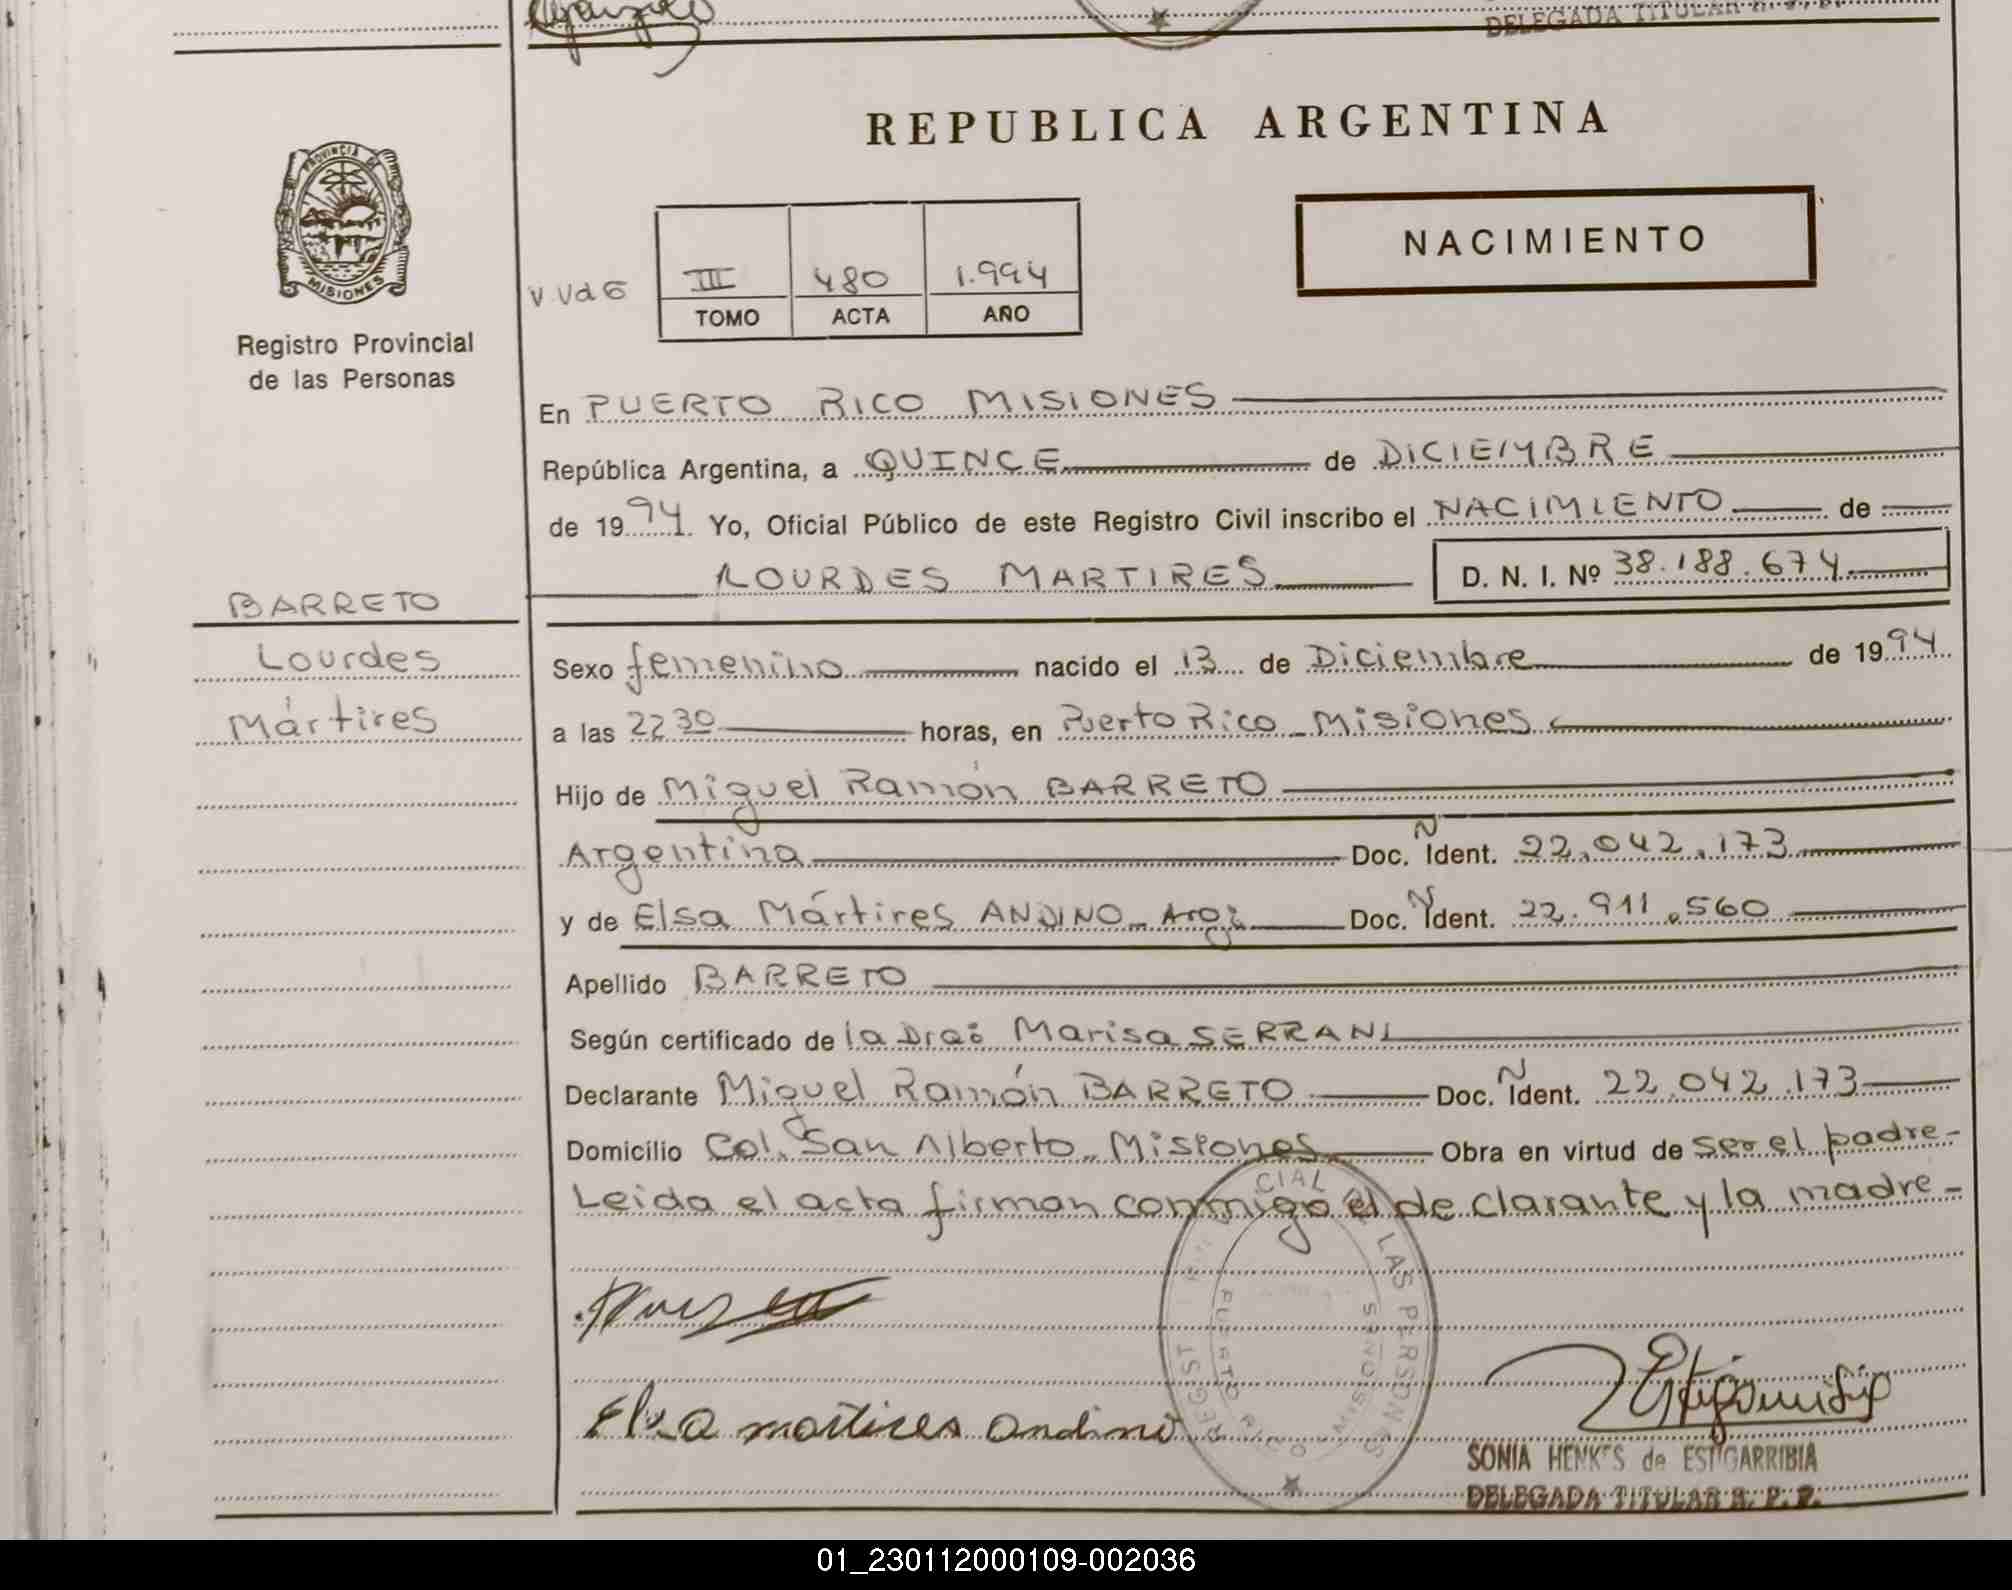 DELEGADA TITULAR R. P. P.
REPUBLICA ARGENTINA
PROVINCIA DE
MISIONES
Registro Provincial
de las Personas
NACIMIENTO
III 480 1.994
TOMO ACTA AÑO
En PUERTO RICO MISIONES
República Argentina, a QUINCE de DICIEMBRE
de 1994. Yo, Oficial Público de este Registro Civil inscribo el NACIMIENTO de
LOURDES MARTIRES D. N. I. Nº 38.188.674
BARRETO
Lourdes
Mártires
Sexo femenino nacido el 13 de Diciembre de 1994
a las 22 30 horas, en Puerto Rico - Misiones
Hijo de Miguel Ramón BARRETO
Argentina Doc. Ñ Ident. 22.042.173
y de Elsa Mártires ANDINO - Arg: Doc. Ñ Ident. 22.911.560
Apellido BARRETO
Según certificado de la Dra: Marisa SERRANI
Declarante Miguel Ramón BARRETO Doc. Ñ Ident. 22.042.173
Domicilio Col. San Alberto - Misiones Obra en virtud de ser el padre -
Leida el acta firman conmigo el declarante y la madre -
Elsa martires andino
REGIST CIAL DE LAS PERSONAS
PUERTO RICO (MISIONES)
SONIA HENKES de ESTIGARRIBIA
DELEGADA TITULAR R. P. P.
01_230112000109-002036